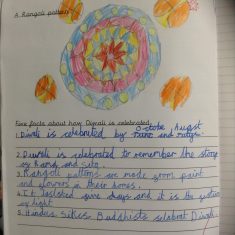 A Rangoli pattern
Five facts about how Diwali is celebrated.
1. Diwali is celebrated by
2. Diwali is celebrated to remember the story
of Rama and Sita.
3. Rangoli pattons are made from paint
and flowers in their homes.
4. It five days and it is the festival
of light
5. Hindus Sikes Buddhists selabrat Diwali.